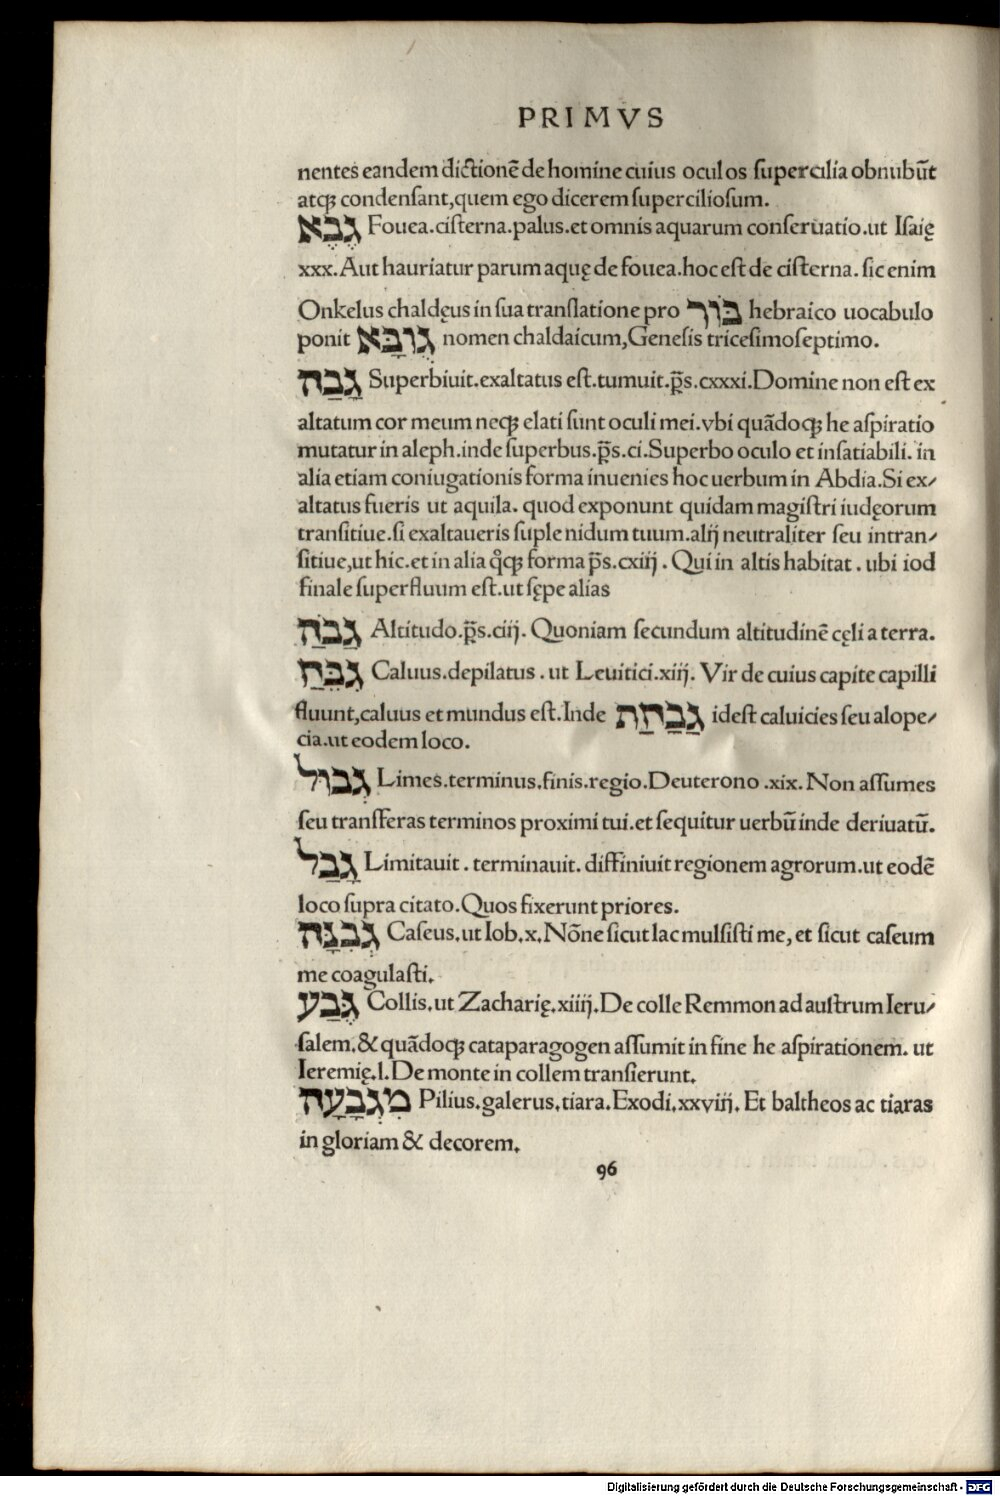 PRIMVS
nentes eandem dictionē de homine cuius oculos supercilia obnubūt
atqꝫ condensant,quem ego dicerem superciliosum.
גֶּבֶא Fouea.cisterna.palus.et omnis aquarum conseruatio.ut Isaię
xxx.Aut hauriatur parum aquę de fouea.hoc est de cisterna.sic enim
Onkelus chaldęus in sua translatione pro בּוֹר hebraico uocabulo
ponit גּוּבָּא nomen chaldaicum,Genesis tricesimoseptimo.
גָּבַהּ Superbiuit.exaltatus est.tumuit.p̄s.cxxxi.Domine non est ex
altatum cor meum neqꝫ elati sunt oculi mei.vbi quādoqꝫ he aspiratio
mutatur in aleph.inde superbus.p̄s.ci.Superbo oculo et insatiabili.in
alia etiam coniugationis forma inuenies hoc uerbum in Abdia.Si ex/
altatus fueris ut aquila.quod exponunt quidam magistri iudęorum
transitiue.si exaltaueris suple nidum tuum.alij neutraliter seu intran/
sitiue,ut hic.et in alia q̊qꝫ forma p̄s.cxiij.Qui in altis habitat.ubi iod
finale superfluum est.ut sępe alias
גֹּבַהּ Altitudo.p̄s.ciij.Quoniam secundum altitudinē cęli a terra.
גִּבֵּחַ Caluus.depilatus.ut Leuitici.xiij.Vir de cuius capite capilli
fluunt,caluus et mundus est.Inde גַּבַּחַת idest caluicies seu alope/
cia.ut eodem loco.
גְּבוּל Limes.terminus.finis.regio.Deuterono.xix.Non assumes
seu transferas terminos proximi tui.et sequitur uerbū inde deriuatū.
גָּבַל Limitauit.terminauit.diffiniuit regionem agrorum.ut eodē
loco supra citato.Quos fixerunt priores.
גְּבִנָּה Caseus.ut Iob.x.Nōne sicut lac mulsisti me,et sicut caseum
me coagulasti.
גֶּבַע Collis.ut Zacharię.xiiij.De colle Remmon ad austrum Ieru/
salem.& quādoqꝫ cataparagogen assumit in fine he aspirationem.ut
Ieremię.l.De monte in collem transierunt.
מִגְבָּעָה Pilius.galerus.tiara.Exodi.xxviij.Et baltheos ac tiaras
in gloriam & decorem.
96
Digitalisierung gefördert durch die Deutsche Forschungsgemeinschaft - DFG